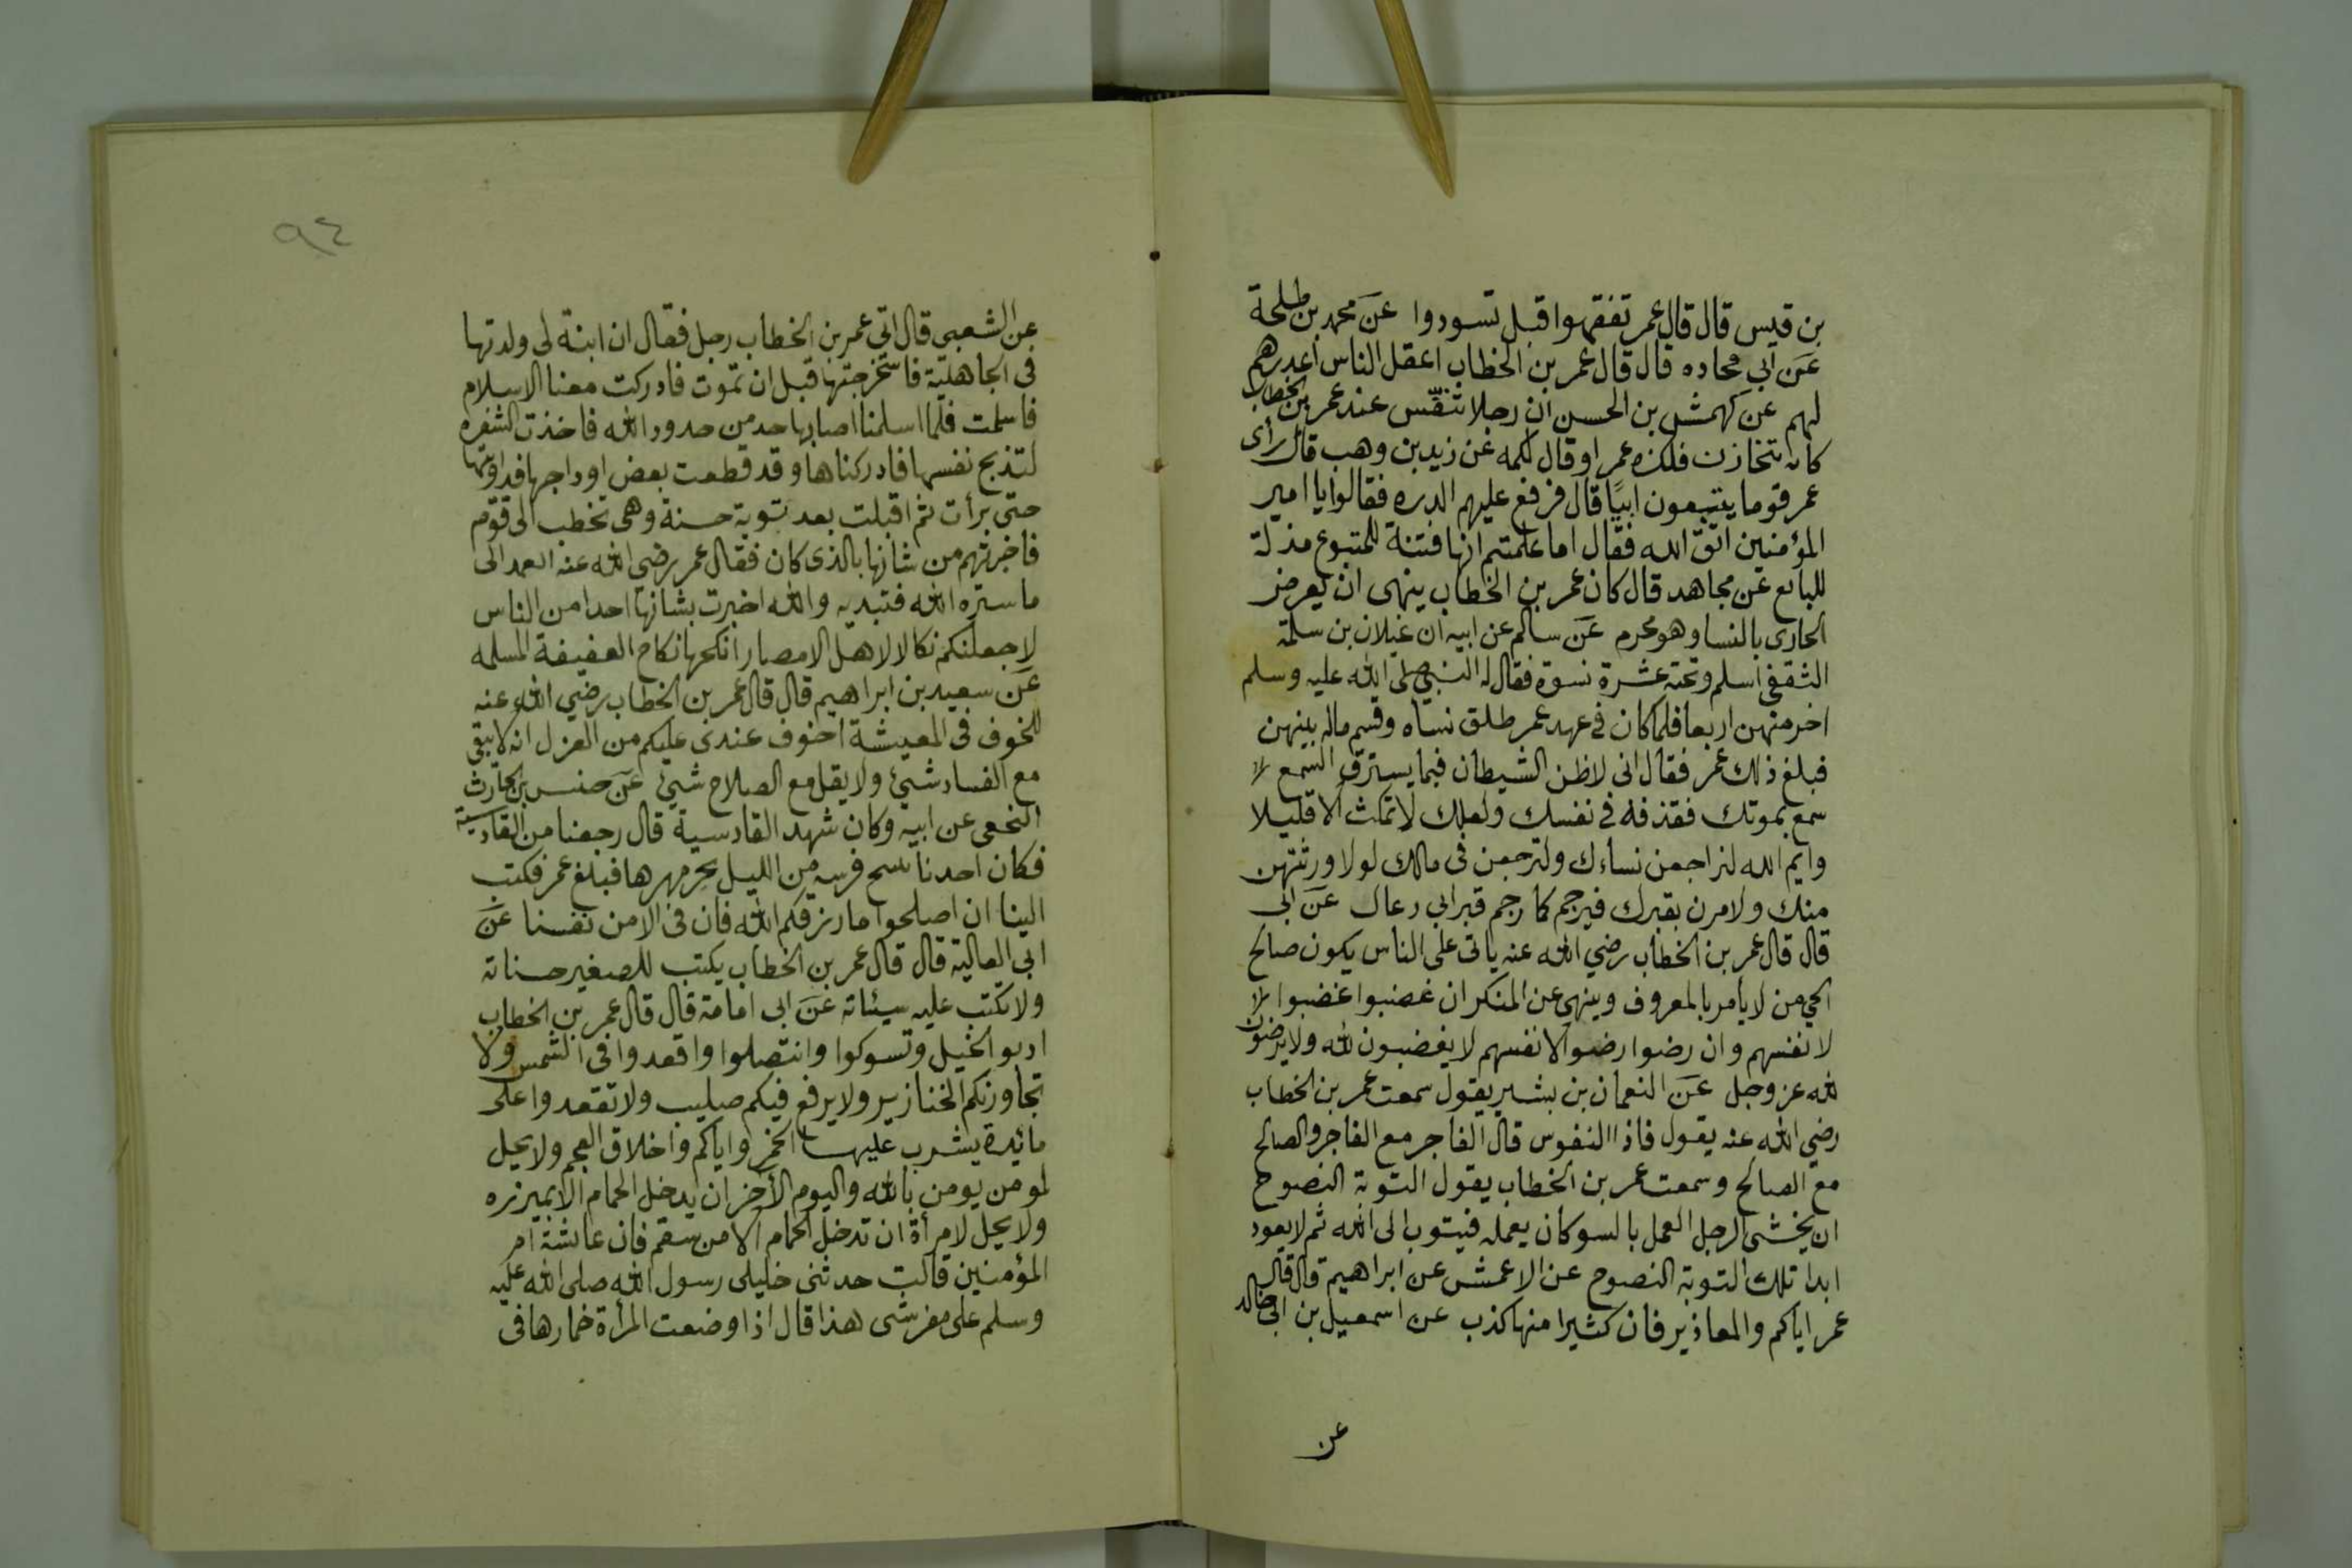 بن قيس قال قال عمر تفقهوا قبل تسودوا عن محمد بن طلحة
عن ابي محاده قال قال عمر بن الخطاب اعقل الناس اعدرهم
لهم عن كهمش بن الحسن ان رجلا تنفّس عند عمر بن الخطاب
كان يتخازن فلكزه عمر او قال لكمه عن زيد بن وهب قال رأى
عمر قوما يتبعون ابيًا قال فرفع عليهم الدره فقالوا يا امير
المؤمنين اتق الله فقال اما علمتم انها فتنة للمتبوع مذلة
للبايع عن مجاهد قال كان عمر بن الخطاب ينهى ان يعرض
الحادى بالنسا وهو محرم عن سالم عن ابيه ان غيلان بن سلمة
الثقفي اسلم وتحته عشرة نسوة فقال له النبي صلى الله عليه وسلم
اختر منهن اربعا فلما كان في عهد عمر طلق نساه وقسم ماله بينهن
فبلغ ذلك عمر فقال انى لاظن الشيطان فيما يسترق السمع لا
سمع بموتك فقذفه في نفسك ولعلك لا تمكث الا قليلا
وايم الله لتراجعن نساءك ولترجعن في مالك لولا ورثتهن
منك ولامرن بقبرك فيرجم كما رجم قبر ابي رعال عن ابي
قال قال عمر بن الخطاب رضي الله عنه ياتى على الناس يكون صالح
الحي من لا يأمر بالمعروف وينهى عن المنكر ان غضبوا غضبوا لا
لانفسهم وان رضوا رضوا لانفسهم لا يغضبون لله ولا يرضون
لله عز وجل عن النعمان بن بشير يقول سمعت عمر بن الخطاب
رضي الله عنه يقول فاذا النفوس قال الفاجر مع الفاجر والصالح
مع الصالح وسمعت عمر بن الخطاب يقول التوبة النصوح
ان يخشى الرجل العمل بالسو كان يعمله فيتوب الى الله ثم لا يعود
ابدا تلك التوبة النصوح عن الاعمش عن ابراهيم قال قال
عمر اياكم والمعاذير فان كثيرا منها كذب عن اسمعيل بن ابي خالد
عن
٩٤
عن الشعبي قال اتي عمر بن الخطاب رجل فقال ان ابنة لى ولدتها
في الجاهلية فاستخرجتها قبل ان تموت فادركت معنا الاسلام
فاسلمت فلما اسلمنا اصابها حد من حدود الله فاخذت الشفره
لتذبح نفسها فادركناها وقد قطعت بعض اوداجها فداويتها
حتى برأت ثم اقبلت بعد بتوبة حسنة وهى تخطب الى قوم
فاخبرتهم من شانها بالذى كان فقال عمر رضي الله عنه اتعمد الى
ما ستره الله فتبديه والله اخبرت بشانها احدا من الناس
لاجعلنكم نكالا لاهل الامصار انكحها نكاح العفيفة المسلمه
عن سعيد بن ابراهيم قال قال عمر بن الخطاب رضي الله عنه
للخوف في المعيشة اخوف عندى عليكم من العزل انه لا يبقى
مع الفساد شئ ولا يقل مع الصلاح شئ عن حنس بن الحارث
النخعى عن ابيه وكان شهد القادسية قال رجعنا من القادسية
فكان احدنا فرسه من الليل نحر مهرها فبلغ عمر فكتب
الينا ان اصلحوا ما رزقكم الله فان في الامن نفسنا عن
ابي العالية قال قال عمر بن الخطاب يكتب للصغير حسناته
ولا يكتب عليه سيئاته عن ابي امامة قال قال عمر بن الخطاب
ادبوا الخيل وتسوكوا وانتصلوا واقعدوا في الشمس ولا
تجاورنكم الخنازير ولا يرفع فيكم صليب ولا تقعدوا على
مائدة يشرب عليها الخمر واياكم واخلاق العجم ولا يحل
لمومن يومن بالله واليوم الآخر ان يدخل الحمام الا بميزره
ولا يحل لامرأة ان تدخل الحمام الا من سقم فان عائشة ام
المؤمنين قالت حدثنى خليلى رسول الله صلى الله عليه
وسلم على مفرشى هذا قال اذا وضعت المرأة خمارها في